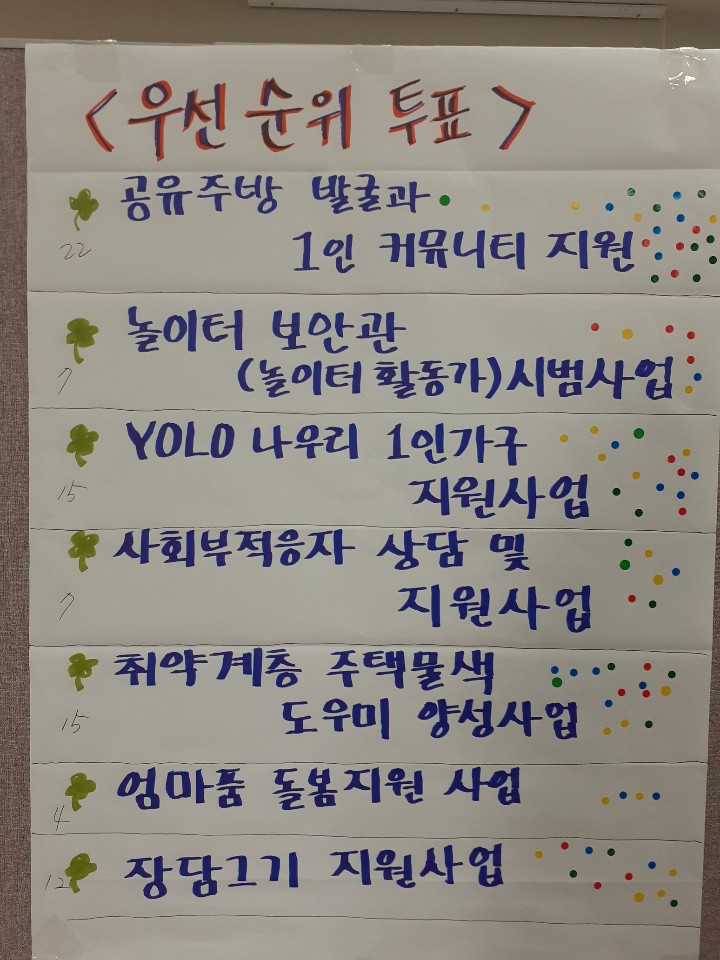 <우선순위 투표>
공유주방 발굴과
22
1인 커뮤니티 지원
놀이터 보안관
7
(놀이터 활동가)시범사업
YOLO 나우리 1인가구
15
지원사업
사회부적응자 상담 및
7
지원사업
취약계층 주택물색
15
도우미 양성사업
엄마품 돌봄지원 사업
4
12
장담그기 지원사업